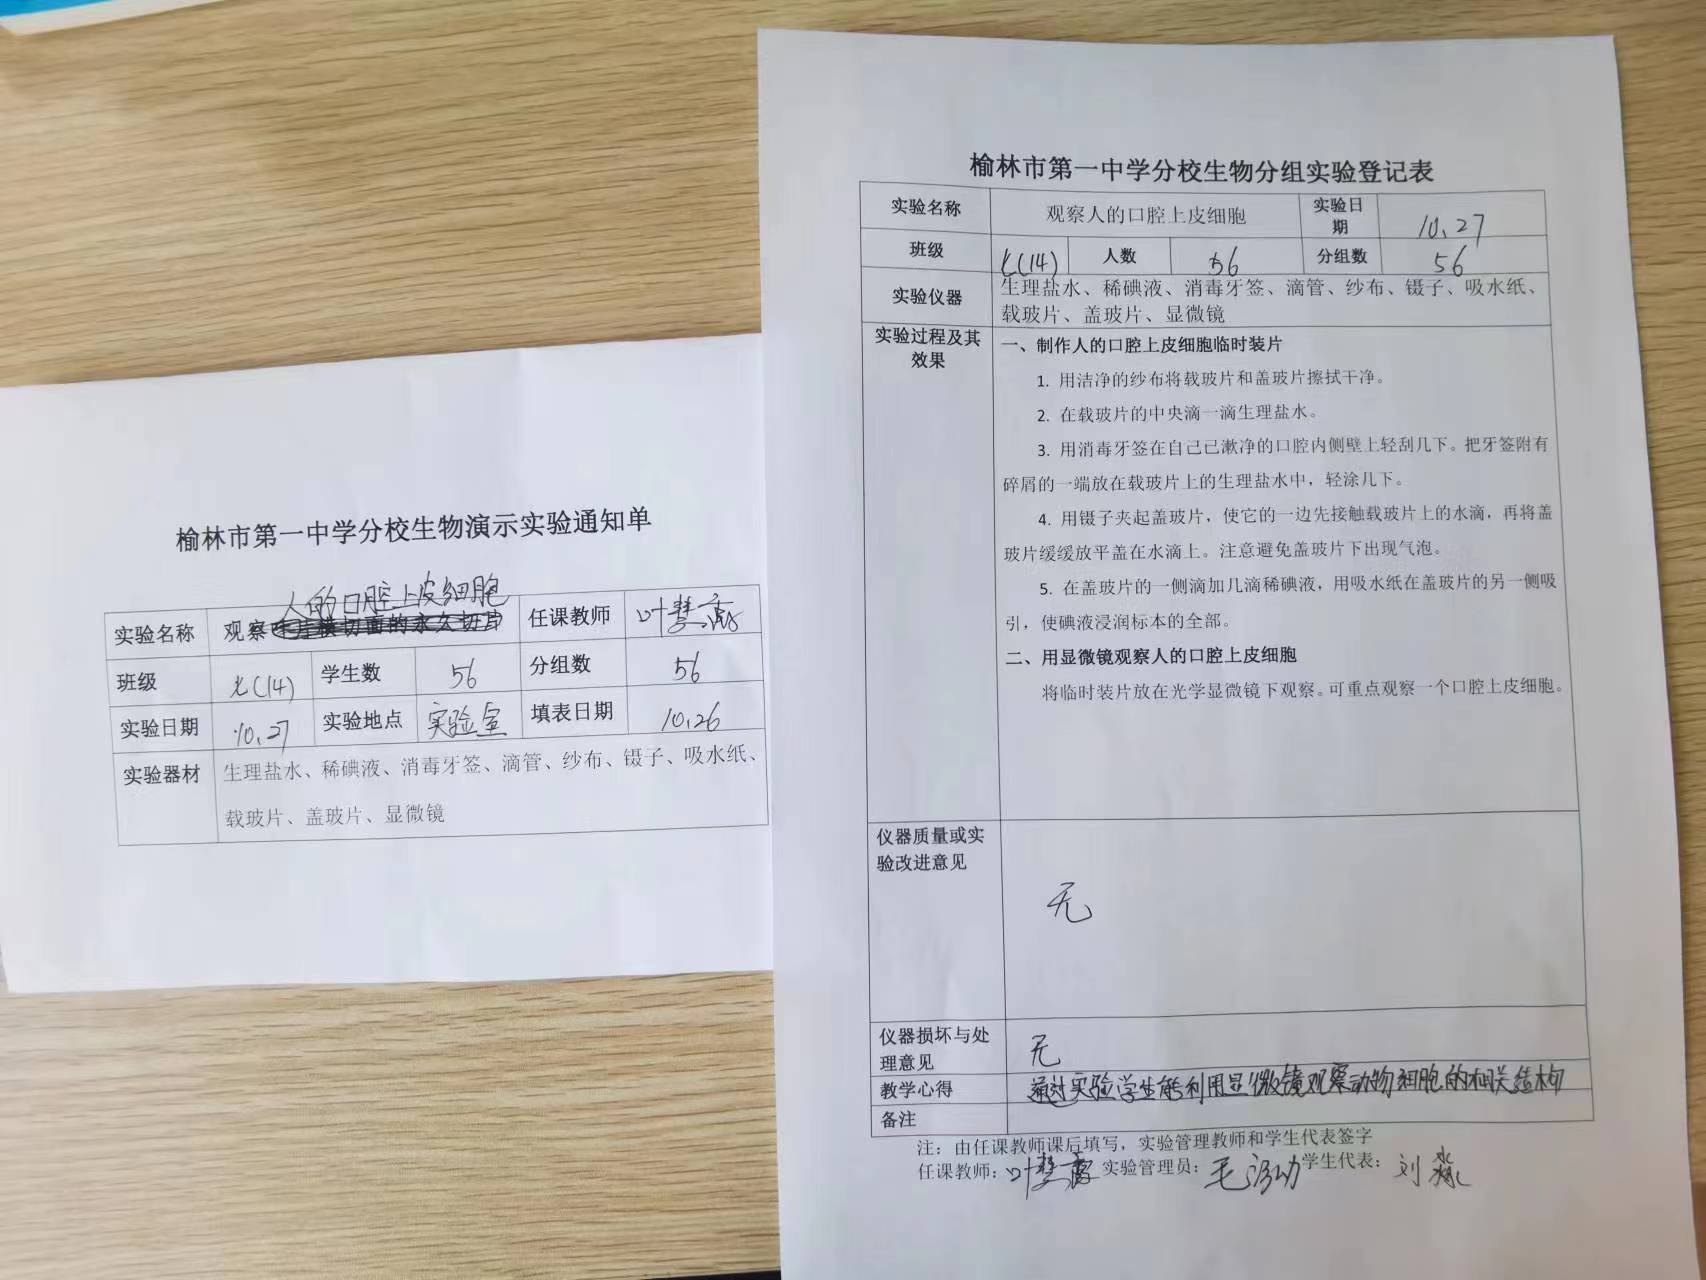 榆林市第一中学分校生物演示实验通知单
人的口腔上皮细胞
实验名称 观察叶片横切面的永久切片 任课教师 叶慧
班级 七(14) 学生数 56 分组数 56
实验日期 10.27 实验地点 实验室 填表日期 10.26
实验器材 生理盐水、稀碘液、消毒牙签、滴管、纱布、镊子、吸水纸、
载玻片、盖玻片、显微镜
榆林市第一中学分校生物分组实验登记表
实验名称 观察人的口腔上皮细胞 实验日
期 10.27
班级 七(14) 人数 56 分组数 56
实验仪器 生理盐水、稀碘液、消毒牙签、滴管、纱布、镊子、吸水纸、
载玻片、盖玻片、显微镜
实验过程及其
效果
一、制作人的口腔上皮细胞临时装片
1. 用洁净的纱布将载玻片和盖玻片擦拭干净。
2. 在载玻片的中央滴一滴生理盐水。
3. 用消毒牙签在自己已漱净的口腔内侧壁上轻刮几下。把牙签附有
碎屑的一端放在载玻片上的生理盐水中，轻涂几下。
4. 用镊子夹起盖玻片，使它的一边先接触载玻片上的水滴，再将盖
玻片缓缓放平盖在水滴上。注意避免盖玻片下出现气泡。
5. 在盖玻片的一侧滴加几滴稀碘液，用吸水纸在盖玻片的另一侧吸
引，使碘液浸润标本的全部。
二、用显微镜观察人的口腔上皮细胞
将临时装片放在光学显微镜下观察。可重点观察一个口腔上皮细胞。
仪器质量或实
验改进意见
无
仪器损坏与处
理意见
无
教学心得 通过实验学生能利用显微镜观察动物细胞的相关结构
备注
注：由任课教师课后填写，实验管理教师和学生代表签字
任课教师：叶慧 实验管理员：毛 学生代表：刘淼